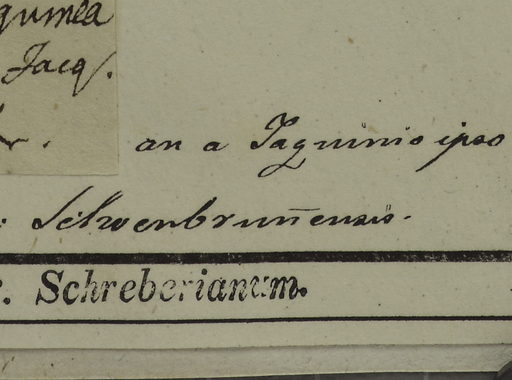 gumea
Jacq.
an a Jaquinio ipso
Schoenbrunensis.
. Schreberianum.